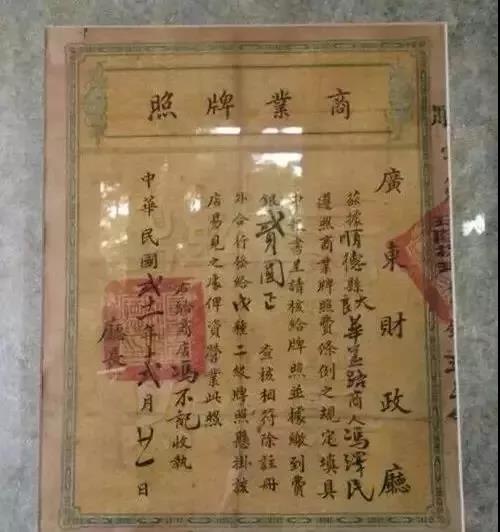 商業牌照
廣東財政廳
茲據順德縣大良華蓋路商人馮澤民
遵照商業牌照費條例之規定填具
申報書呈請核給牌照並據繳到費
銀貳圓正 查核相符除註冊
外合行發給戊種二等牌照懸掛該
店易見之處俾資營業此照
右給商店馮不記收執
廳長
中華民國 年 月 日